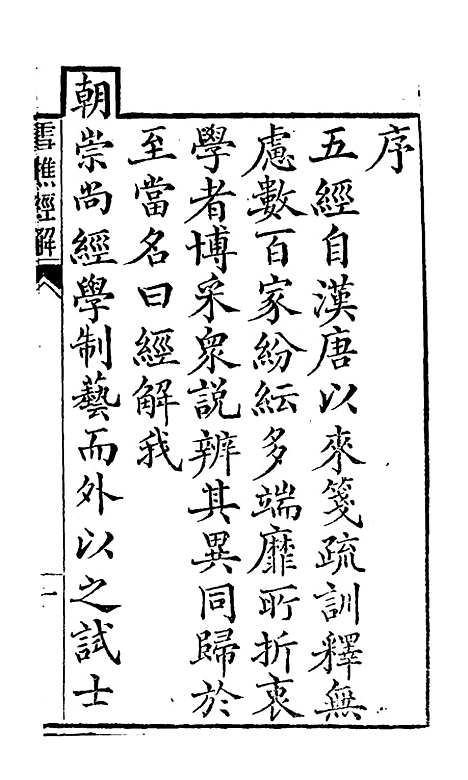 序
五經自漢唐以來箋疏訓釋無
慮數百家紛紜多端靡所折衷
學者博采衆說辨其異同歸於
至當名曰經解我
朝崇尚經學制藝而外以之試士
雪樵經解
一